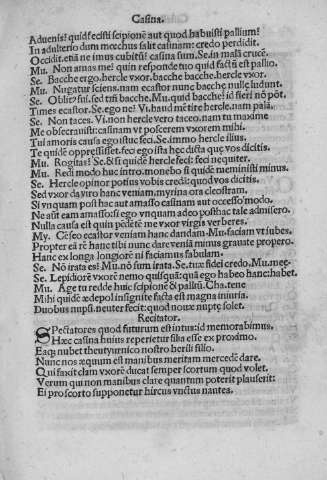 Casina.
Aduenis? quid fecisti scipionē aut quod habuisti pallium?
In adulterio dum mœchus salit casinam: credo perdidit.
Occidit. etiā ne imus cubitū? casina sum. Se. in malā crucē.
Mu. Non amas me? quin responde tuo quid factū est pallio.
Se. Bacche ergo. hercle vxor. bacche bacche. hercle vxor.
Mu. Nugatur sciens. nam ecastor nunc bacchę nullę ludunt.
Se. Oblitº fui. sed tñ bacche. Mu. quid bacchę? id fieri nō pōt.
Times ecastor. Se. ego ne? Vi. haud mētire hercle. nam palā.
Se. Non taces. Vi. non hercle vero taceo. nam tu maxime
Me obsecrauisti: casinam vt poscerem vxorem mihi.
Tui amoris causa ego istuc feci. Se. immo hercle illius.
Te quidē oppressisset. feci ego ista hęc dicta quę vos dicitis.
Mu. Rogitas? Se. Si si quidē hercle feci: feci nequiter.
Mu. Redi modo huc intro. monebo si quid meministi minus.
Se. Hercle opinor potius vobis credā: quod vos dicitis.
Sed vxor da viro hanc veniam, myrina ora cleostram.
Si vnquam post hac aut amasso casinam aut occesso modo.
Ne aūt eam amasso: si ego vnquam adeo post hac tale admisero.
Nulla causa est quin pēdētē me vxor virgis verberes.
My. Cēseo ecastor veniam hanc dandam. Mu. faciam vt iubes.
Propter eā rē hanc tibi nunc dare veniā minus grauate propero.
Hanc ex longa longiorē ni faciamus fabulam.
Se. Nō irata es? Mu. nō sum irata. Se. tuæ fidei credo. Mu. meę.
Se. Lepidiorē vxorē nemo quisquā: quā ego habeo hanc: habet.
Mu. Age tu redde huic scipionē & palliū. Cha. tene
Mihi quidē ædepol insignite facta est magna iniuria.
Duobus nupsi. neuter fecit: quod nouæ nuptę solet.
Recitator.
SPectatores quod futurum est intus: id memorabimus.
Hæc casina huius reperietur filia esse ex proximo.
Eaq; nubet theutynico nostro herili filio.
Nunc nos æquum est manibus meritam mercedē dare.
Qui faxit clam vxorē ducat semper scortum quod volet.
Verum qui non manibus clare quantum poterit plauserit:
Ei pro scorto supponetur hircus vnctus nautea.